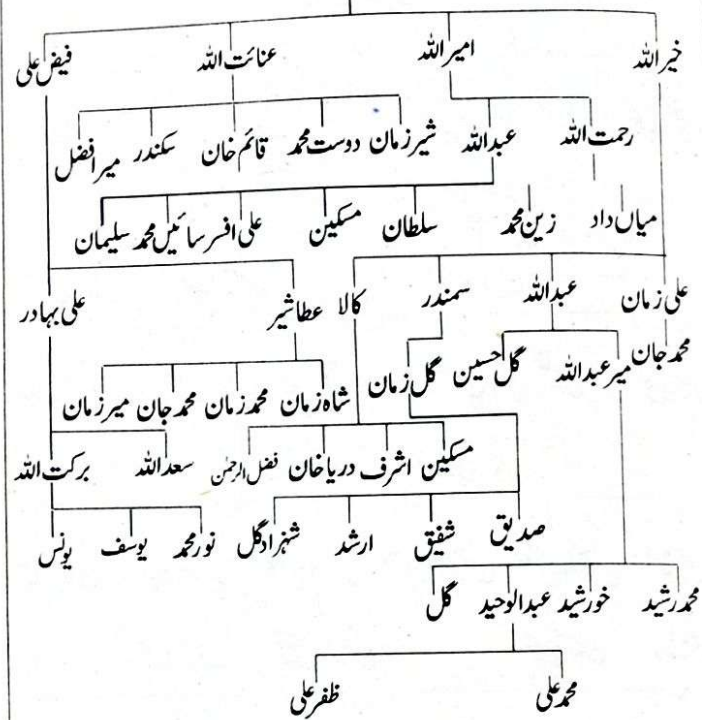 خیر اللہ امیر اللہ عنائت اللہ فیض علی
رحمت اللہ عبداللہ شیر زمان دوست محمد قائم خان سکندر میر افضل
میاں داد زین محمد سلطان مسکین علی افسر سائیں محمد سلیمان
علی زمان عبداللہ سمندر کالا عطا شیر علی بہادر
محمد جان میر عبداللہ گل حسین گل زمان شاہ زمان محمد زمان محمد جان میر زمان
مسکین اشرف دریا خان فضل الرحمٰن سعد اللہ برکت اللہ
صدیق شفیق ارشد شہزاد گل نور محمد یوسف یونس
محمد رشید خورشید عبدالوحید گل
محمد علی ظفر علی